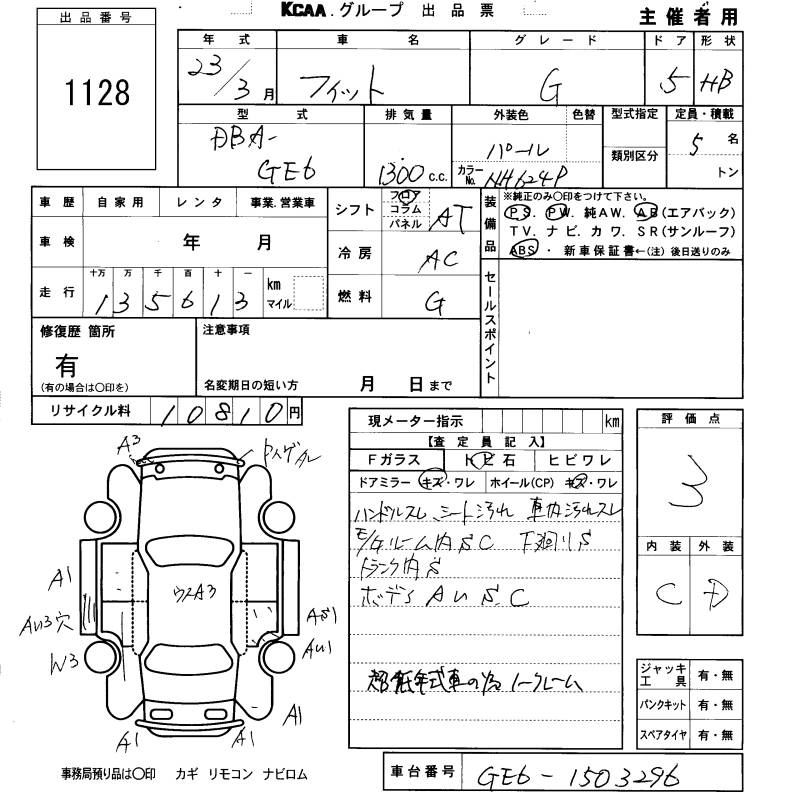 KCAA.グループ 出品票 主催者用
出品番号
1128
年式 車名 グレード ドア 形状
23/3月 フィット G 5 HB
型式 排気量 外装色 色替 型式指定 定員・積載
DBA-GE6 1300c.c. パール カラーNo. NH624P 類別区分 5名 トン
車歴 自家用 レンタ 事業.営業車
車検 年 月
走行 十万 万 千 百 十 一
135613 km マイル
シフト フロア コラム パネル AT
冷房 AC
燃料 G
装備品 ※純正のみ〇印をつけて下さい。
PS. PW. 純AW. AB(エアバック)
TV. ナビ. カワ. SR(サンルーフ)
ABS・新車保証書←(注)後日送りのみ
セールスポイント
修復歴 箇所
有
(有の場合は〇印を)
注意事項
名変期日の短い方 月 日まで
リサイクル料 10810円
現メーター指示 km
【査定員記入】
Fガラス トビ石 ヒビワレ
ドアミラー キズ・ワレ ホイール(CP) キズ・ワレ
ハンドルスレ シート汚れ 車内汚れスレ
ルーム内SC 下廻りS
トランク内S
ボデーAUS.C
超低年式車の為ノークレーム
評価点
3
内装 外装
C D
ジャッキ工具 有・無
パンクキット 有・無
スペアタイヤ 有・無
A3
A1
AU3穴
W3
A1
A1
A1
AU1
AS1
A3
事務局預り品は〇印 カギ リモコン ナビロム
車台番号 GE6-1503296